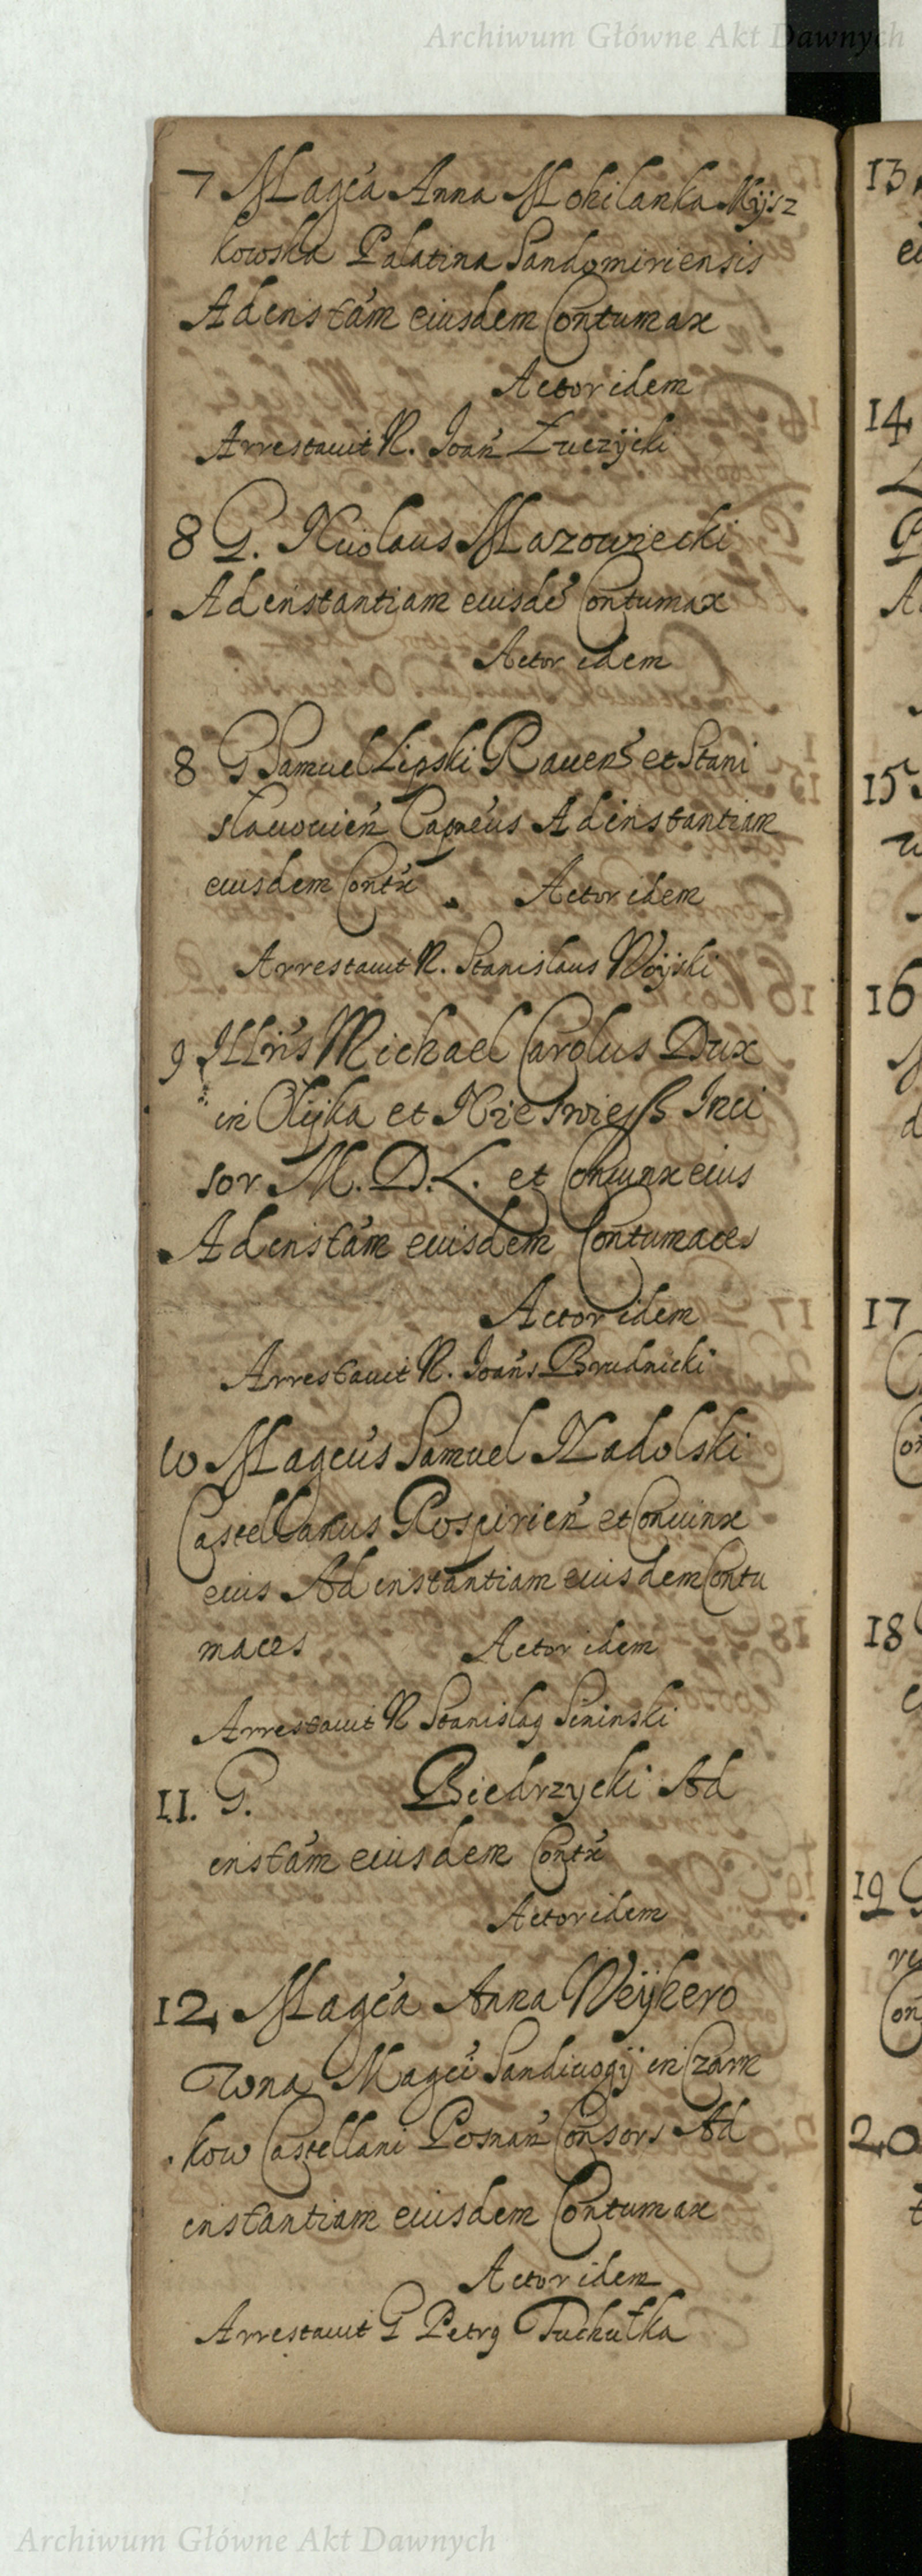 Archiwum Główne Akt Dawnych
7 Magca Anna Mohilanka Mÿsz
kowska Palatina Sandomiriensis
Ad instãm eiusdem Contumax
Actor idem
Arrestauit N. Joań Łuczÿcki
8 G. Nicolaus Mazowiecki
Ad instantiam eiusdẽ Contumax
Actor idem
8 G Samuel Lipski Rauens et Stani
slauouień Capneus Ad instantiam
eiusdem Contx Actor idem
Arrestauit N. Stanislaus Woÿski
9 Illris Michael Carolus Dux
in Olÿka et Nieswiesz Inci
sor M. D. L. et Coniunx eius
Ad instãm eiusdem Contumaces
Actor idem
Arrestauit N. Joans Brudnicki
10 Magcus Samuel Nadolski
Castellanus Rospirień et Coniunx
eius Ad instantiam eiusdem Contu
maces Actor idem
Arrestauit N Stanislaꝯ Sininski
11. G. Biedrzycki Ad
instãm eiusdem Contx
Actor idem
12 Magca Anna Weÿhero
wna Magci Sandiuogÿ in Czarn
kow Castellani Posnań Consors Ad
instantiam eiusdem Contumax
Actor idem
Arrestauit G Petrꝯ Tuchułka
13
14
15
16
17
18
19
20
Archiwum Główne Akt Dawnych